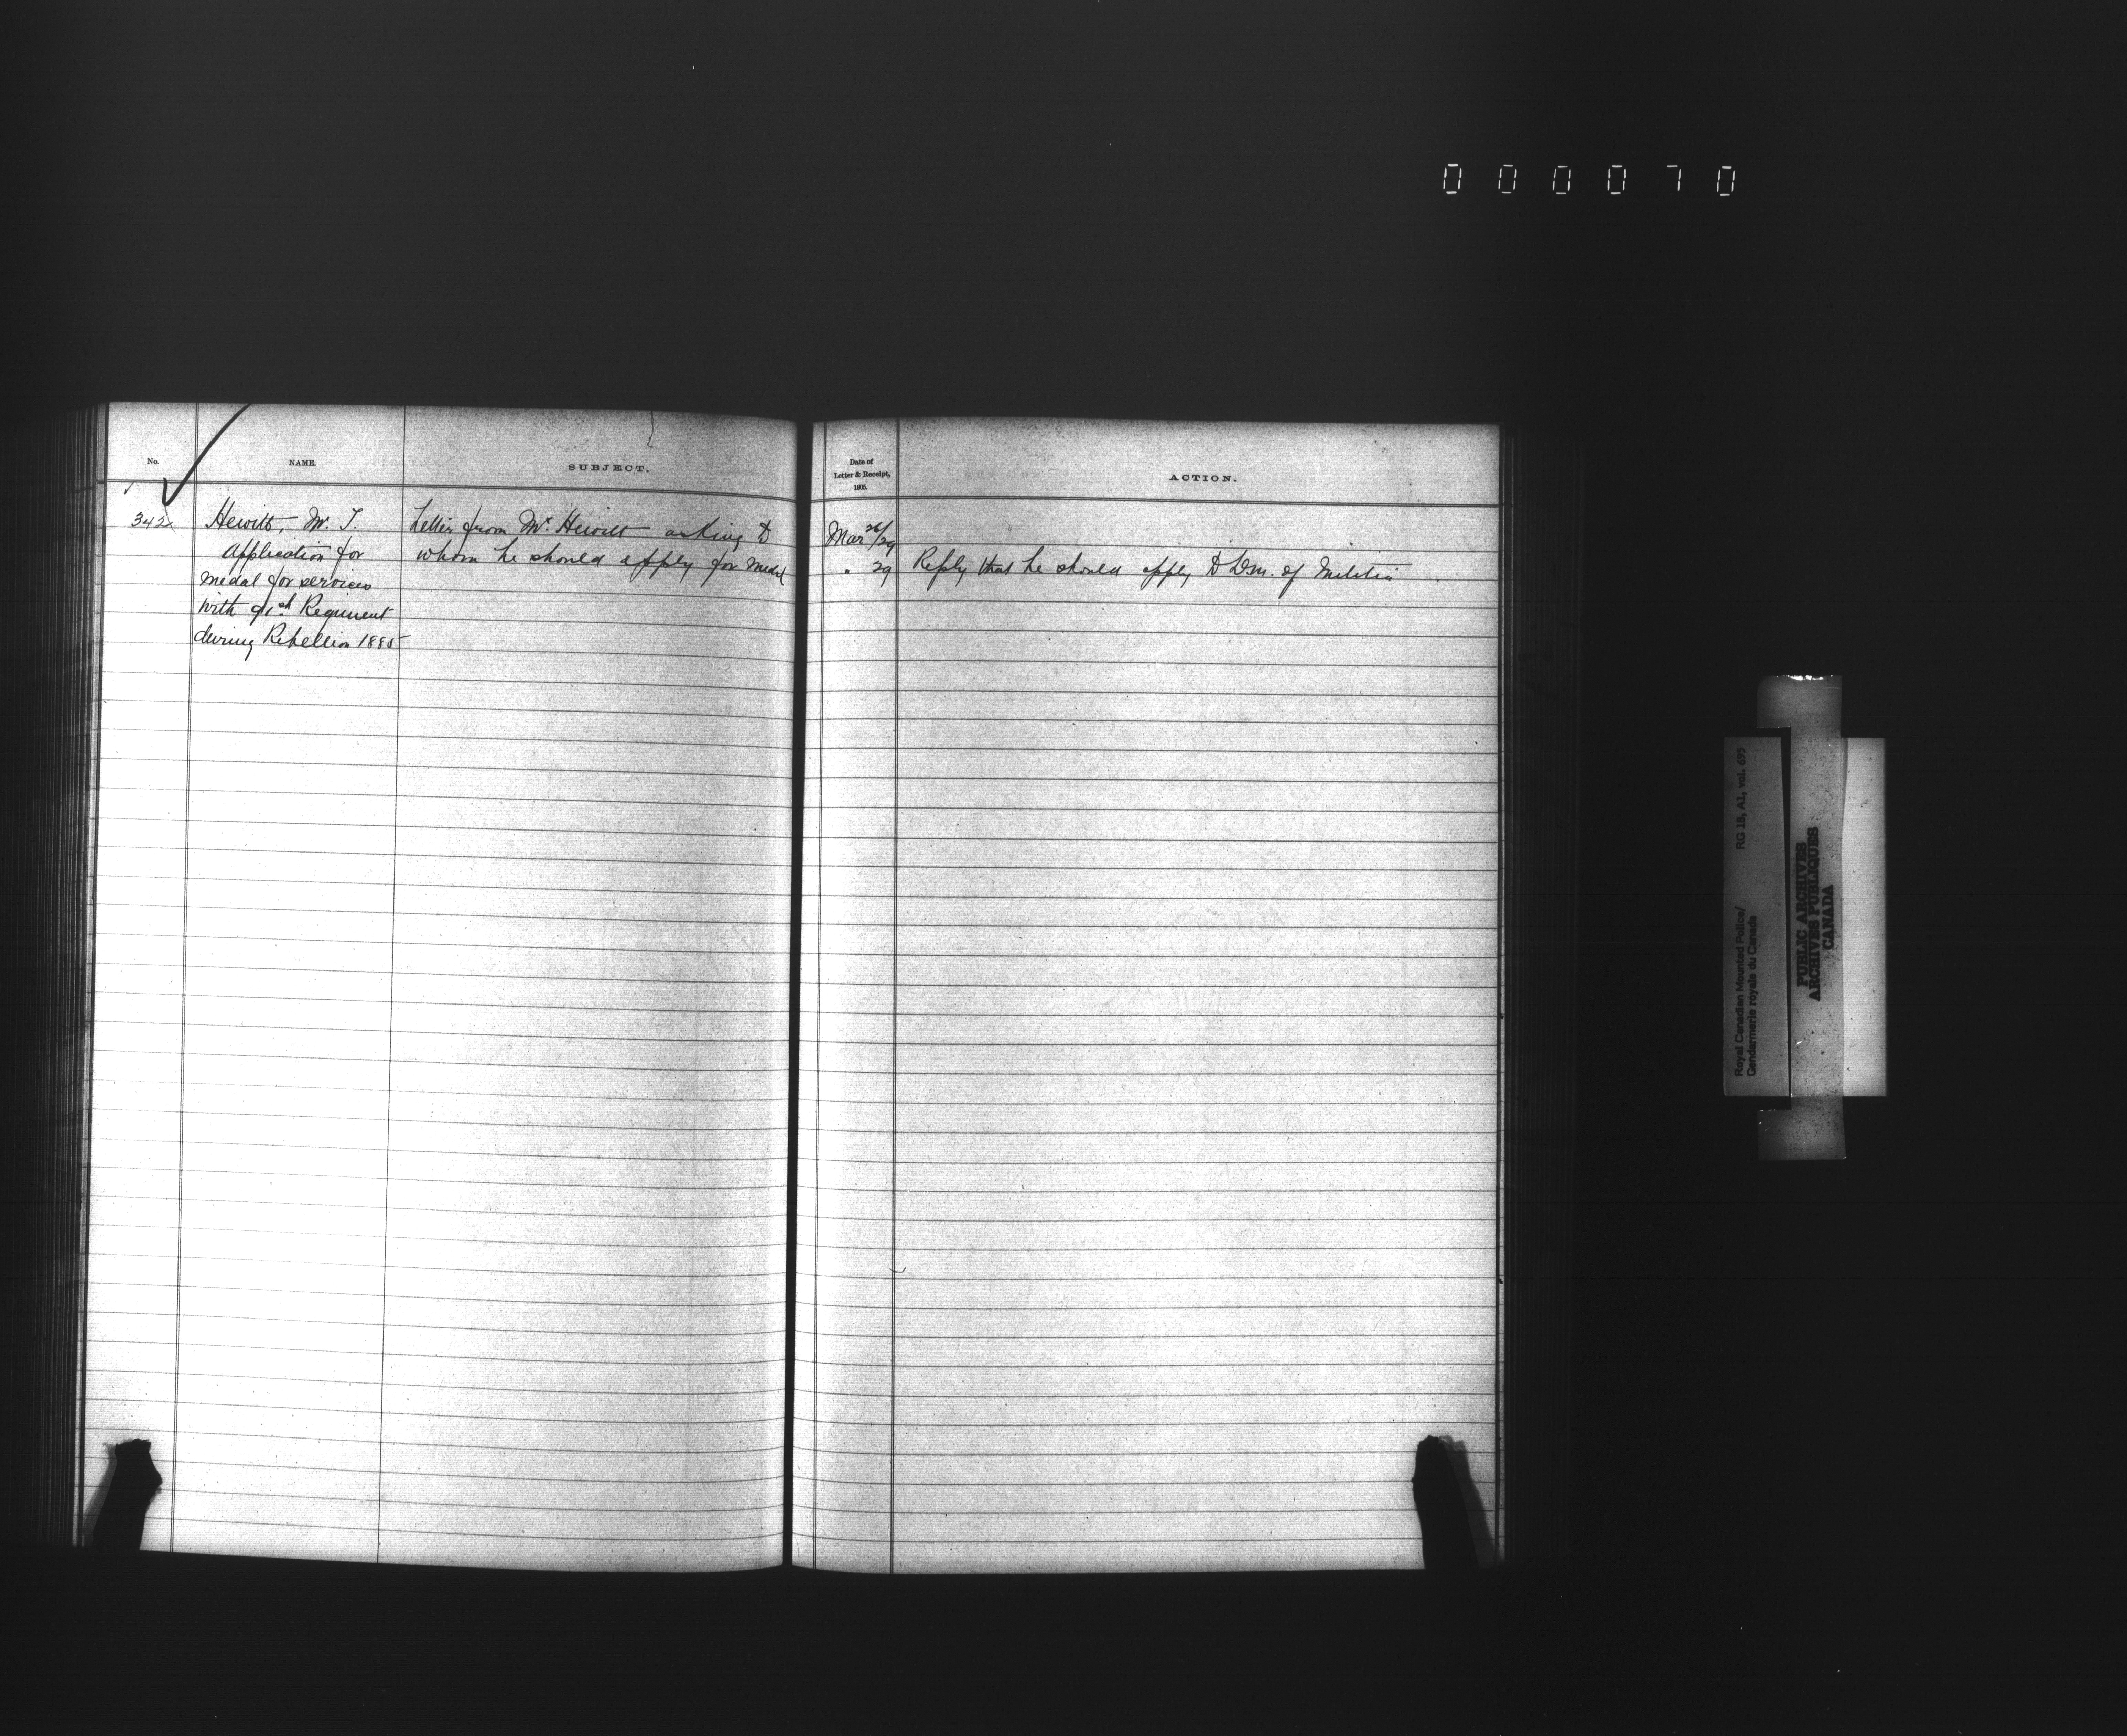 000070
No.
NAME.
SUBJECT.
342
Hewitt, W. T.
Application for
medal for services
with 91st Regiment
during Rebellion 1885
Letter from Mr. Hewitt asking to
whom he should apply for medal
Date of
Letter & Receipt,
1905.
ACTION.
Mar 26/29
" 29
Reply that he should apply to Dm. of Militia
Royal Canadian Mounted Police/
Gendarmerie royale du Canada
RG 18, A1, vol. 695
PUBLIC ARCHIVES
ARCHIVES PUBLIQUES
CANADA